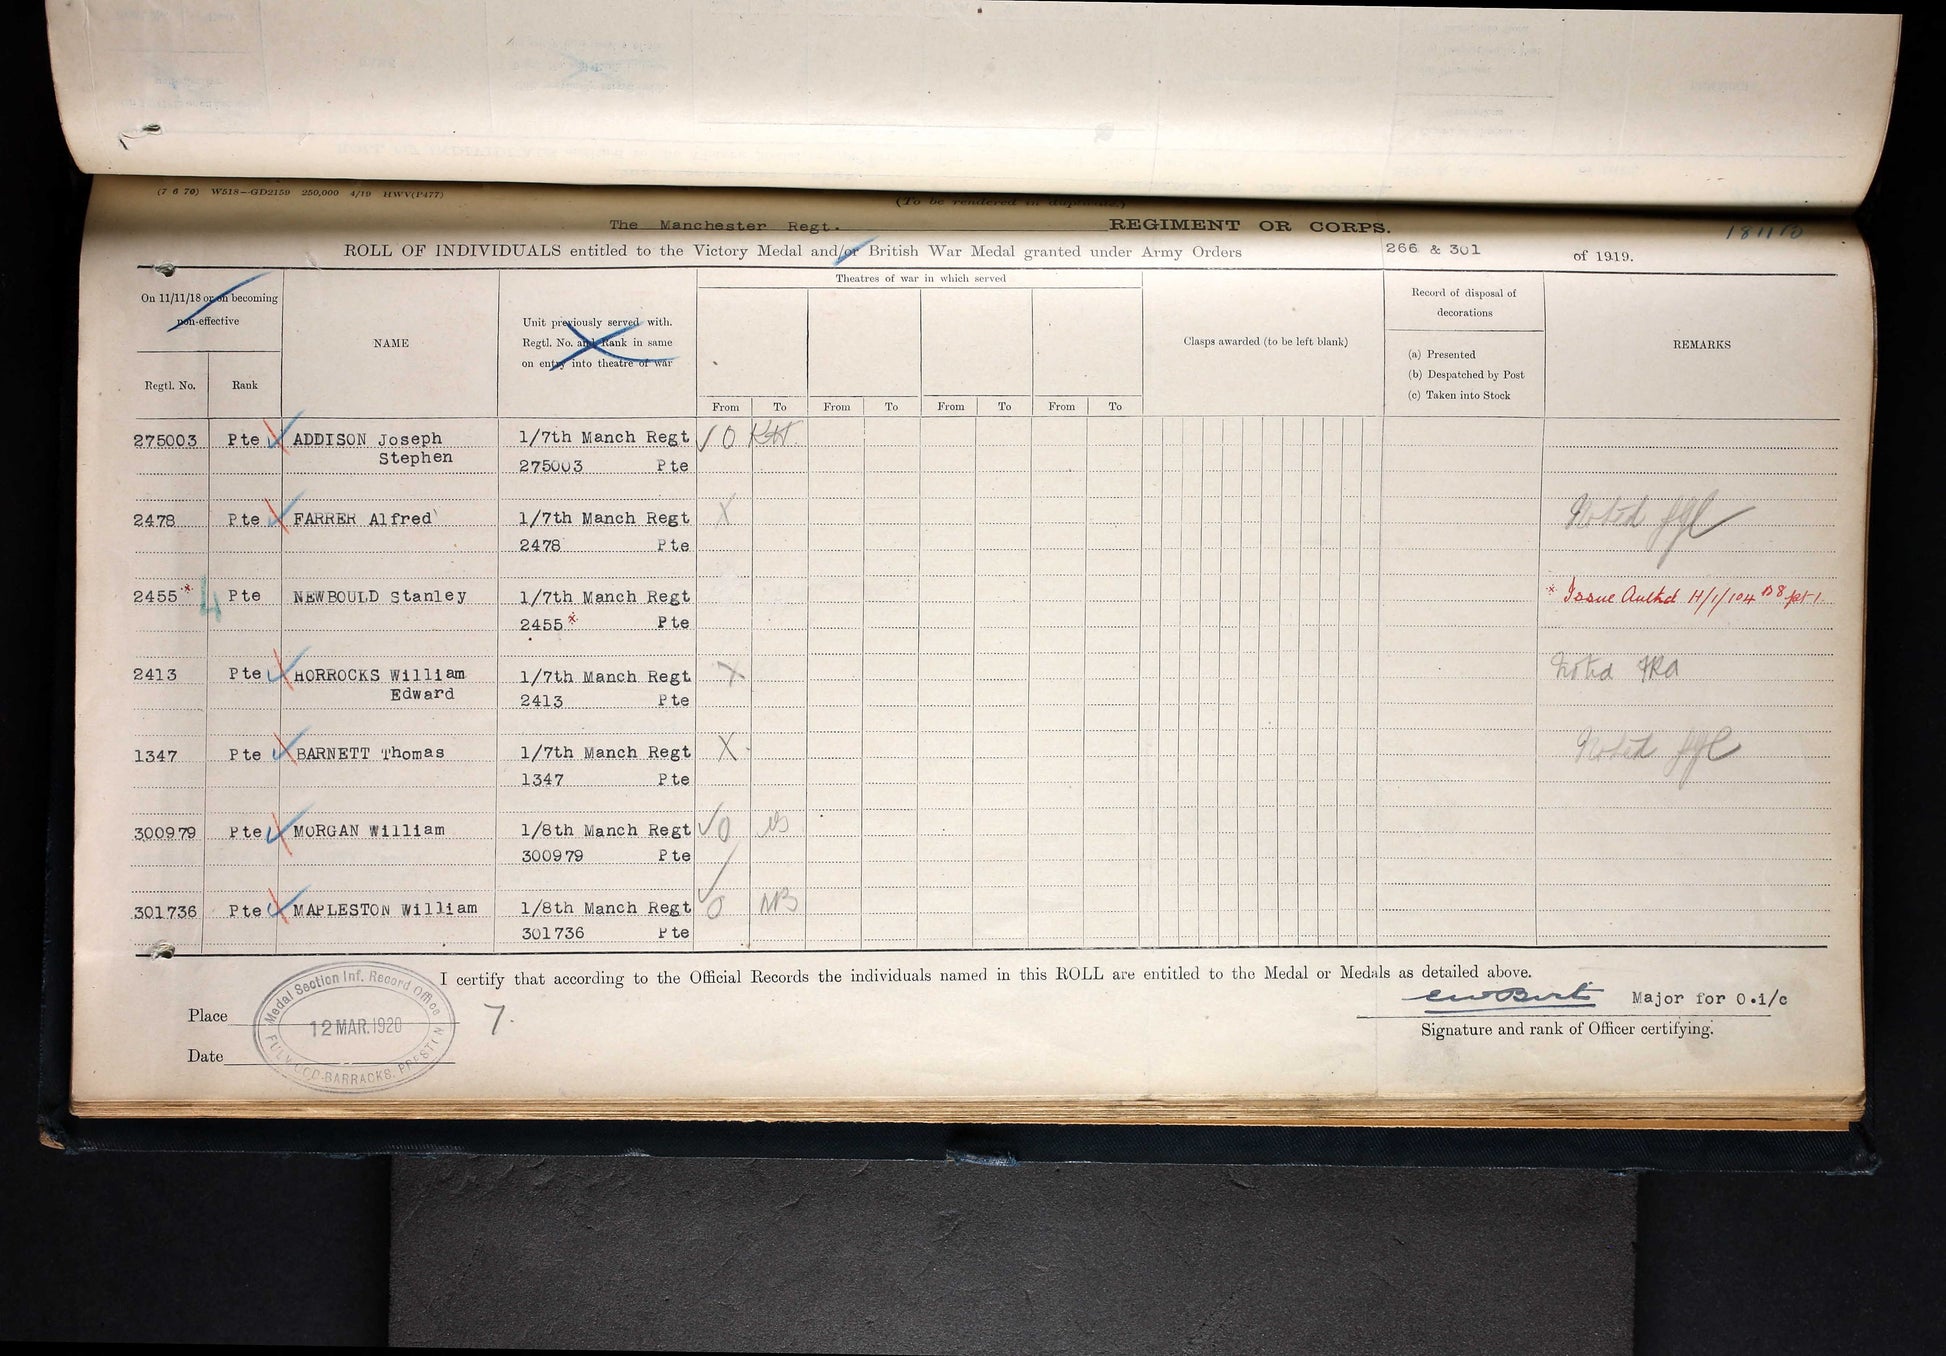 (7 6 70) W518—GD2159 250,000 4/19 HWV(P477)
(To be rendered in duplicate.)
The Manchester Regt. REGIMENT OR CORPS.
ROLL OF INDIVIDUALS entitled to the Victory Medal and/or British War Medal granted under Army Orders 266 & 301 of 1919.
On 11/11/18 or on becoming non-effective
Regtl. No.
Rank
NAME
Unit previously served with.
Regtl. No. and Rank in same
on entry into theatre of war
Theatres of war in which served
From To From To From To From To
Clasps awarded (to be left blank)
Record of disposal of
decorations
(a) Presented
(b) Despatched by Post
(c) Taken into Stock
REMARKS
275003 Pte ADDISON Joseph 1/7th Manch Regt
Stephen 275003 Pte
2478 Pte FARRER Alfred 1/7th Manch Regt X Noted
2478 Pte
2455 * 4 Pte NEWBOULD Stanley 1/7th Manch Regt * Issue Authd H/1/104 B8 pt 1.
2455 * Pte
2413 Pte HORROCKS William 1/7th Manch Regt X Noted
Edward 2413 Pte
1347 Pte BARNETT Thomas 1/7th Manch Regt X Noted
1347 Pte
300979 Pte MORGAN William 1/8th Manch Regt
300979 Pte
301736 Pte MAPLESTON William 1/8th Manch Regt
301736 Pte
I certify that according to the Official Records the individuals named in this ROLL are entitled to the Medal or Medals as detailed above.
Place
Date
Medal Section Inf. Record Office
12 MAR. 1920
FULWOOD BARRACKS. PRESTON
7.
Major for O.i/c
Signature and rank of Officer certifying.